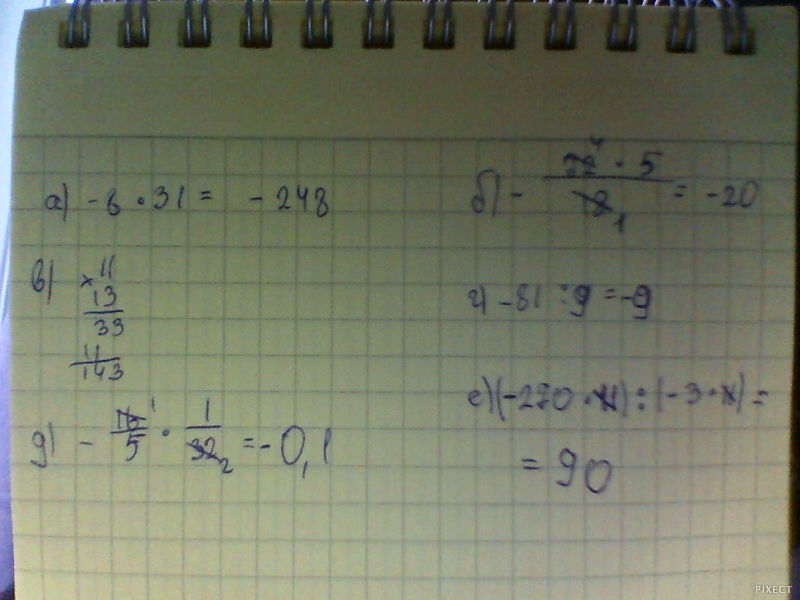 а) -8 · 31 = -248
б) - 72⁴ · 5 / 18 1 = -20
в) × 11
13
33
11
143
г) -81 : 9 = -9
д) - 16¹/5 · 1/32 2 = -0,1
е) (-270 · 11) : (-3 · 11) =
= 90
PIXECT